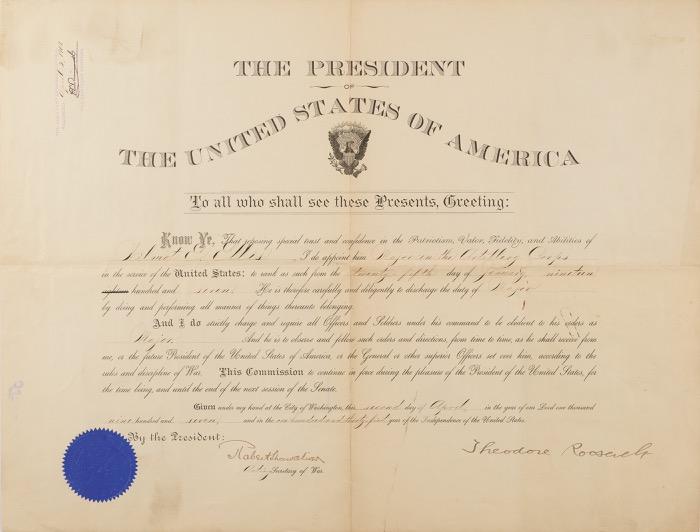 THE PRESIDENT
OF
THE UNITED STATES OF AMERICA
To all who shall see these Presents, Greeting:
Know Ye, That reposing special trust and confidence in the Patriotism, Valor, Fidelity, and Abilities of
Wilmot E. Ellis, I do appoint him Major in the Artillery Corps
in the service of the United States: to rank as such from the twenty fifth day of January, nineteen
eighteen hundred and seven. He is therefore carefully and diligently to discharge the duty of Major
by doing and performing all manner of things thereunto belonging.
And I do strictly charge and require all Officers and Soldiers under his command to be obedient to his orders as
Major. And he is to observe and follow such orders and directions, from time to time, as he shall receive from
me, or the future President of the United States of America, or the General or other superior Officers set over him, according to the
rules and discipline of War. This Commission to continue in force during the pleasure of the President of the United States, for
the time being, and until the end of the next session of the Senate.
Given under my hand at the City of Washington, this second day of April, in the year of our Lord one thousand
nine hundred and seven, and in the one hundred and thirty first year of the Independence of the United States.
By the President:
Theodore Roosevelt
Robert Shaw Oliver
Acting Secretary of War.